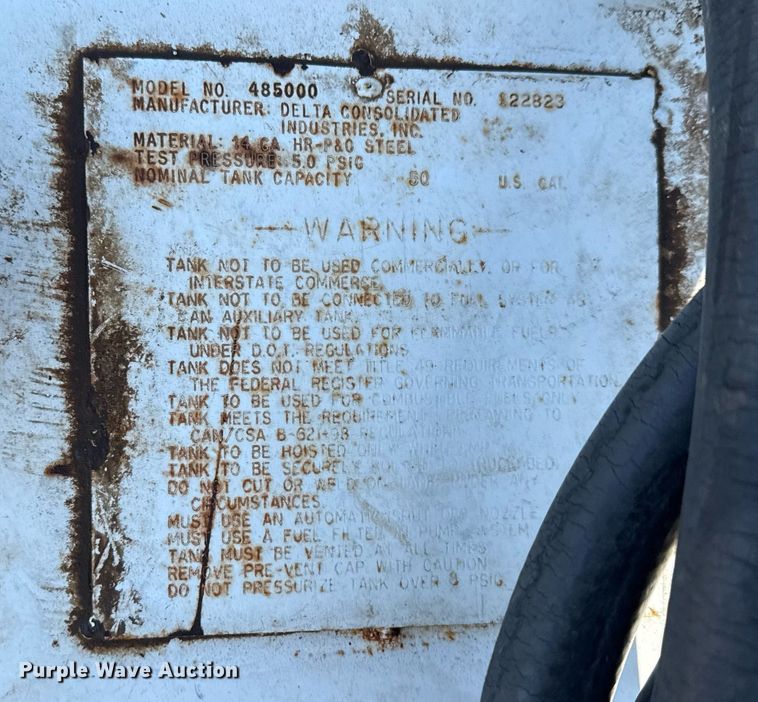 MODEL NO. 485000 SERIAL NO. 122823
MANUFACTURER: DELTA CONSOLIDATED
INDUSTRIES, INC.
MATERIAL: 14 GA. HR-P&O STEEL
TEST PRESSURE 5.0 PSIG
NOMINAL TANK CAPACITY 50 U.S. GAL.
WARNING
TANK NOT TO BE USED COMMERCIALLY OR FOR
INTERSTATE COMMERCE
TANK NOT TO BE CONNECTED TO FUEL SYSTEM AS
AN AUXILIARY TANK
TANK NOT TO BE USED FOR FLAMMABLE FUELS
UNDER D.O.T. REGULATIONS
TANK DOES NOT MEET TITLE 49 REQUIREMENTS OF
THE FEDERAL REGISTER GOVERNING TRANSPORTATION
TANK TO BE USED FOR COMBUSTIBLE FUELS ONLY
TANK MEETS THE REQUIREMENTS PERTAINING TO
CAN/CSA B-621-98 REGULATIONS
TANK TO BE HOISTED ONLY WHEN
TANK TO BE SECURELY BOLTED TRUCK BED
DO NOT CUT OR WELD ON TANK UNDER ANY
CIRCUMSTANCES
MUST USE AN AUTOMATIC SHUT OFF NOZZLE
MUST USE A FUEL FILTER PUMP SYSTEM
TANK MUST BE VENTED AT ALL TIMES
REMOVE PRE-VENT CAP WITH CAUTION
DO NOT PRESSURIZE TANK OVER PSIG
Purple Wave Auction